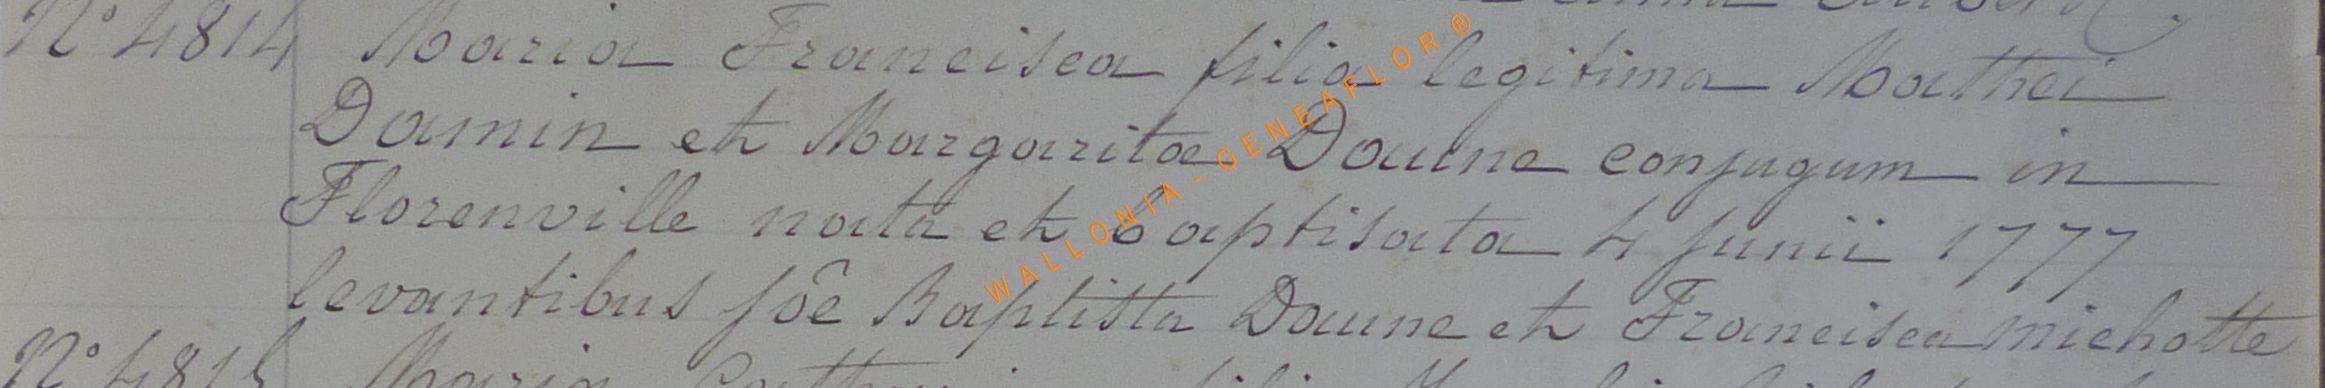 N° 4814 Maria Francisca filia legitima Mathei
Damin et Margaritae Daune conjugum in
Florenville nata et baptisata 4 junii 1777
levantibus joê Baptista Daune et Francisca michotte
N° 4815 Maria
WALLONIA - GENEAFLOR®